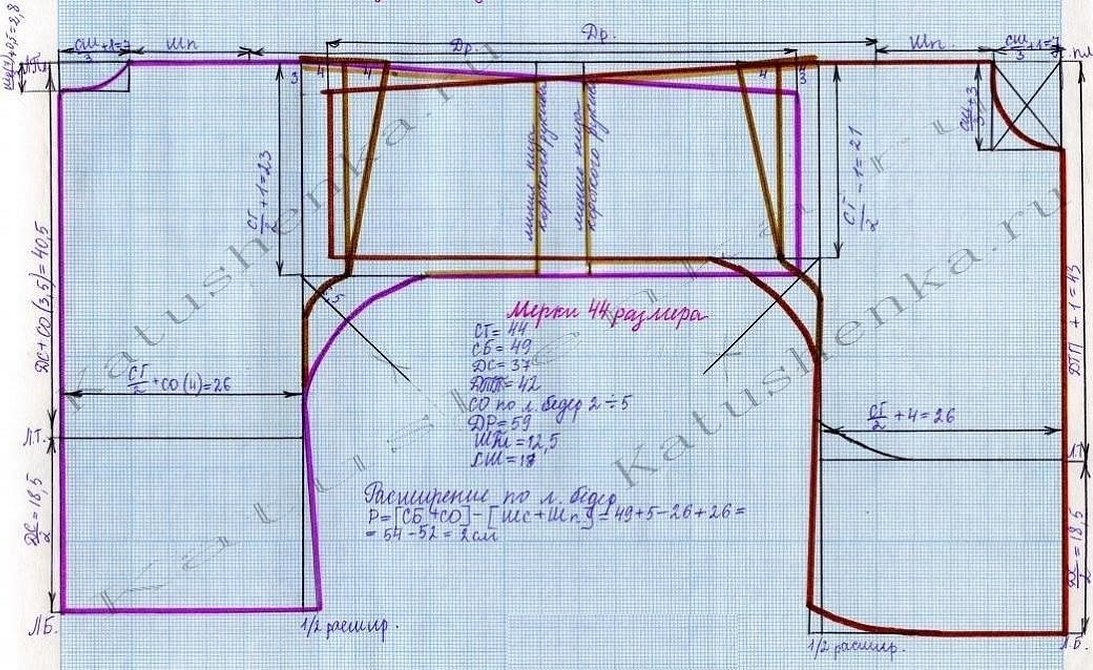 СШ/3 +1=7
Шп
Др.
Др.
Шп.
СШ/3 +1=7
п.л.
3
4
4
4
3
СШ/3 +3
СГ/2 +1=23
СГ/2 -1=21
линия низа короткого рукава
линия низа короткого рукава
ДС+СО(3,5)=40,5
ДТП +1=43
Мерки 44 размера
СГ=44
СБ=49
ДС=37
ДТП=42
СО по л. бедер 2÷5
ДР=59
ШПл=12,5
СШ=18
СГ/2 +СО(4)=26
СГ/2 +4=26
Л.Т.
Л.Т.
ДС/2 =18,5
ДС/2 =18,5
Расширение по л. бедер
Р=[СБ+СО]-[Шс+Шп]=49+5-26+26=
=54-52=2см
Л.Б.
1/2 расшир.
1/2 расшир.
Л.Б.
Katushenka.ru
Katushenka.ru
Katushenka.ru